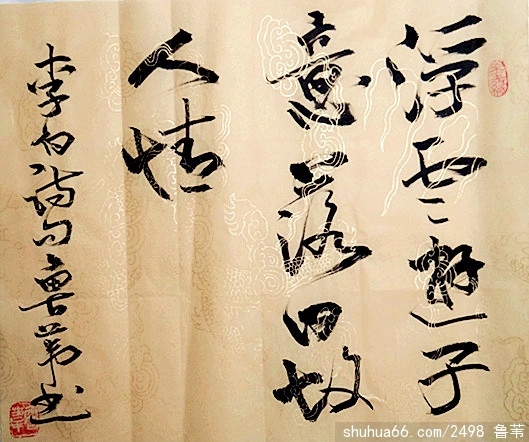 浮云游子
意落日故
人情
李白诗句鲁苇书
shuhua66.com/2498 鲁苇